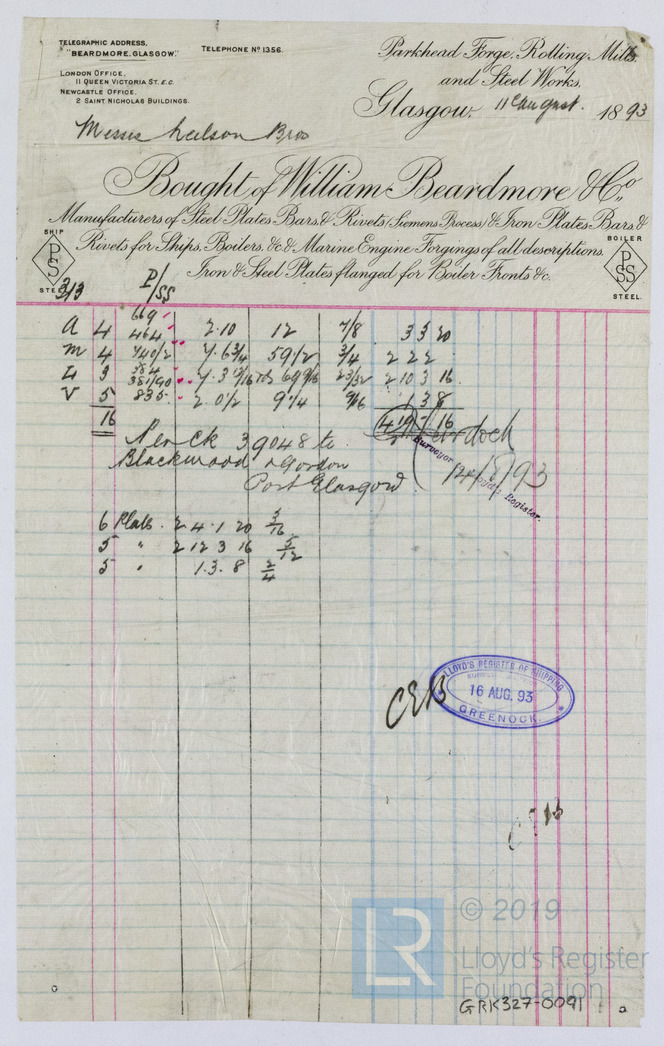 TELEGRAPHIC ADDRESS,
"BEARDMORE, GLASGOW."
TELEPHONE No 1356.
LONDON OFFICE,
11 QUEEN VICTORIA ST. E.C.
NEWCASTLE OFFICE,
2 SAINT NICHOLAS BUILDINGS.
Parkhead Forge, Rolling Mills
and Steel Works,
Glasgow, 11 August 1893
Messrs Neilson Bros
Bought of William Beardmore & Co.,
Manufacturers of Steel Plates, Bars & Rivets (Siemens Process) & Iron Plates, Bars &
Rivets for Ships, Boilers, &c & Marine Engine Forgings of all descriptions.
Iron & Steel Plates flanged for Boiler Fronts &c.
SHIP
PS
STEEL
BOILER
PSS
STEEL.
313
P/SS
669
A 4 464 2.10 12 7/8 3 3 20
M 4 440/2 7.6 3/4 59 1/2 3/4 2 2 2
384
L 3 381/90 23/32 2 10 3 16
V 5 835 2.0 1/2 9 1/4 9/16 1 3 8
16
4 19 - 16
Murdoch
Surveyor Lloyd's Register.
14/8/93
Per CK 39048 to
Blackwood & Gordon
Port Glasgow
6 Plats. 2 4 . 1 20
5 " 2 12 3 16
5 " 1 . 3 . 8
CEB
LLOYD'S REGISTER OF SHIPPING
16 AUG. 93
GREENOCK
LR
© 2019
Lloyd's Register
Foundation
GRK327-0091